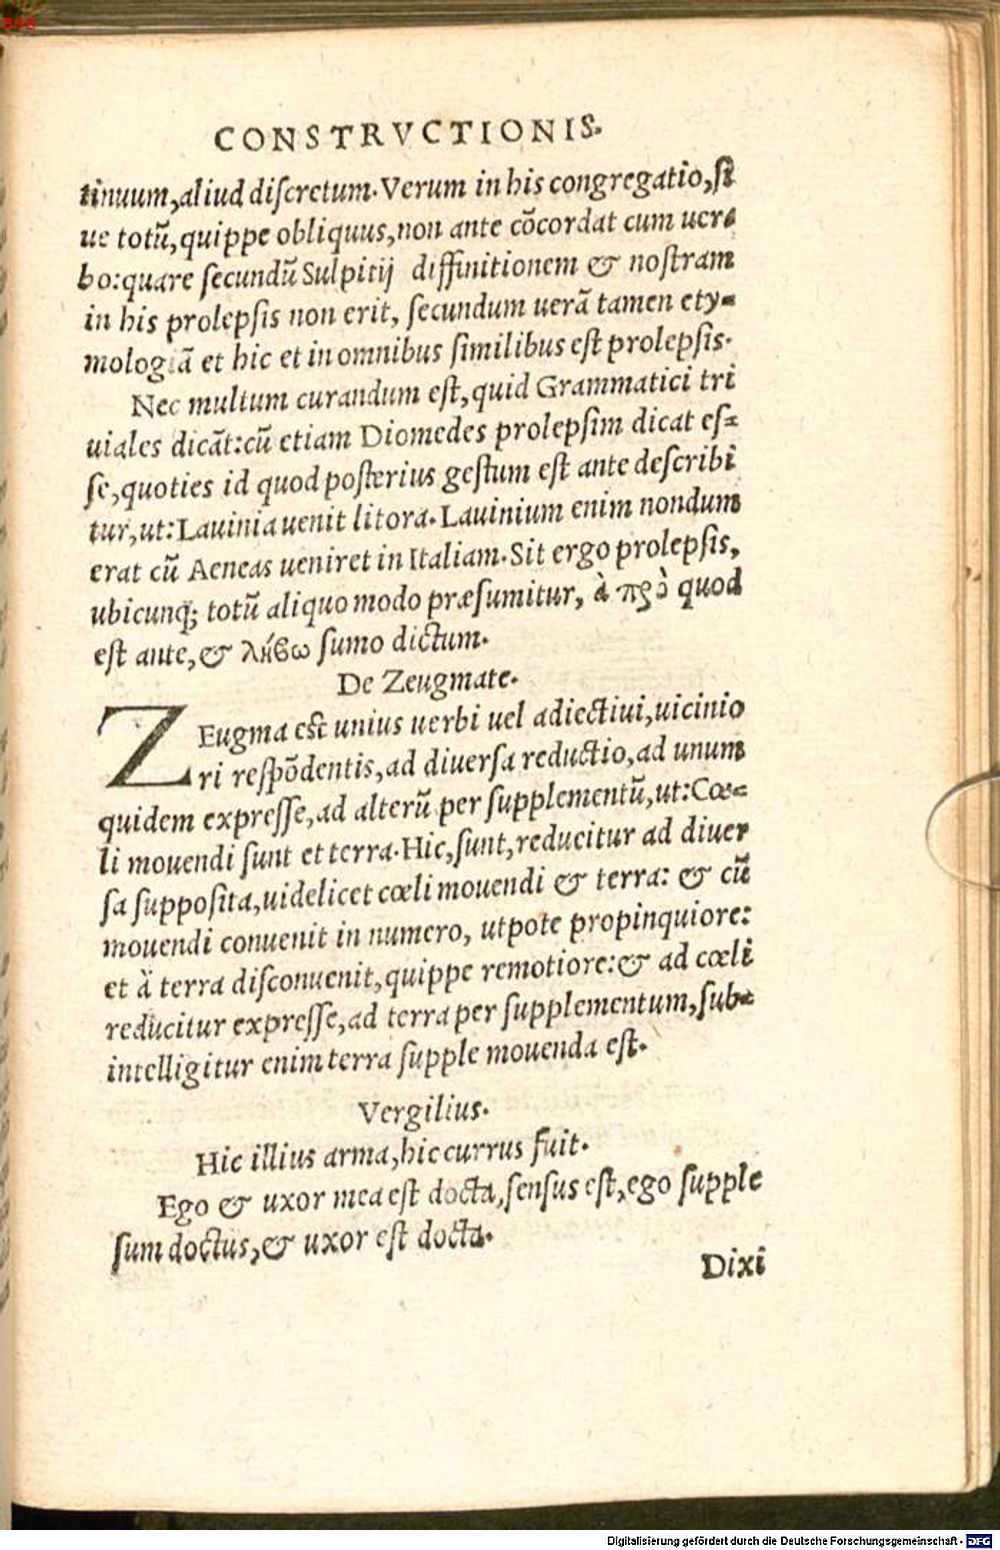 CONSTRVCTIONIS.
tinuum, aliud discretum. Verum in his congregatio, si
ue totũ, quippe obliquus, non ante cõcordat cum uer=
bo: quare secundũ Sulpitij diffinitionem & nostram
in his prolepsis non erit, secundum uerã tamen ety=
mologiã et hic et in omnibus similibus est prolepsis.
Nec multum curandum est, quid Grammatici tri
uiales dicãt: cũ etiam Diomedes prolepsim dicat es=
se, quoties id quod posterius gestum est ante describi
tur, ut: Lauinia uenit litora. Lauinium enim nondum
erat cũ Aeneas ueniret in Italiam. Sit ergo prolepsis,
ubicunq; totũ aliquo modo præsumitur, à πρὸ quod
est ante, & λήβω sumo dictum.
De Zeugmate.
ZEugma est unius uerbi uel adiectiui, uicinio
ri respõdentis, ad diuersa reductio, ad unum
quidem expresse, ad alterũ per supplementũ, ut: Cœ=
li mouendi sunt et terra. Hic, sunt, reducitur ad diuer
sa supposita, uidelicet cœli mouendi & terra: & cũ
mouendi conuenit in numero, utpote propinquiore:
et à terra disconuenit, quippe remotiore: & ad cœli
reducitur expresse, ad terra per supplementum, sub=
intelligitur enim terra supple mouenda est.
Vergilius.
Hic illius arma, hic currus fuit.
Ego & uxor mea est docta, sensus est, ego supple
sum doctus, & uxor est docta.
Dixi
Digitalisierung gefördert durch die Deutsche Forschungsgemeinschaft - DFG